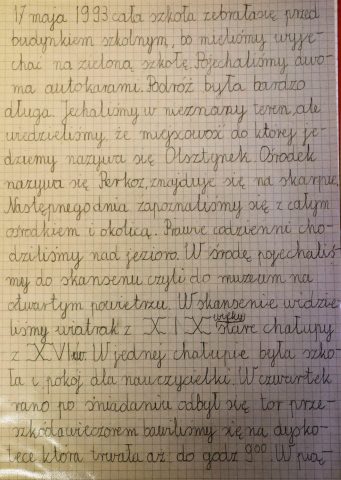 17 maja 1993 cała szkoła zebrała się przed
budynkiem szkolnym, bo mieliśmy wyje-
chać na zieloną szkołę. Pojechaliśmy dwo-
ma autokarami. Podróż była bardzo
długa. Jechaliśmy w nieznany teren, ale
wiedzieliśmy, że miejscowość do której je-
dziemy nazywa się Olsztynek. Ośrodek
nazywa się Perkoz, znajduje się na skarpie.
Następnego dnia zapoznaliśmy się z całym
ośrodkiem i okolicą. Prawie codzienni cho-
dziliśmy nad jezioro. W środę pojechaliś-
my do skansenu czyli do muzeum na
otwartym powietrzu. W skansenie widzie
liśmy wiatrak z XIX wieku stare chałupy
z XVI w. W jednej chałupie była szko-
ła i pokój dla nauczycielki. W czwartek
rano po śniadaniu odbył się tor prze-
szkód a wieczorem bawiliśmy się na dysko-
tece która trwała aż do godz 9⁰⁰. W pią-